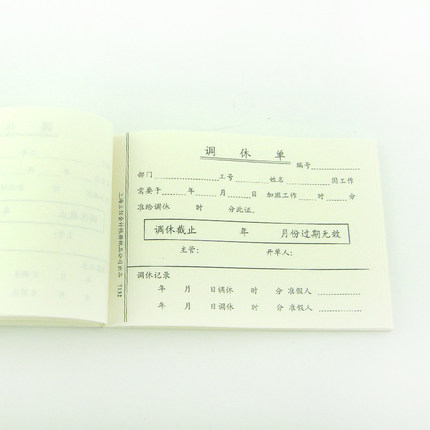 调休单
编号
部门 工号 姓名 因工作
需要于 年 月 日 加班工作 时 分
准给调休 时 分此证。
调休截止 年 月份过期无效
主管: 开单人:
调休记录
年 月 日调休 时 分 准假人
年 月 日调休 时 分 准假人